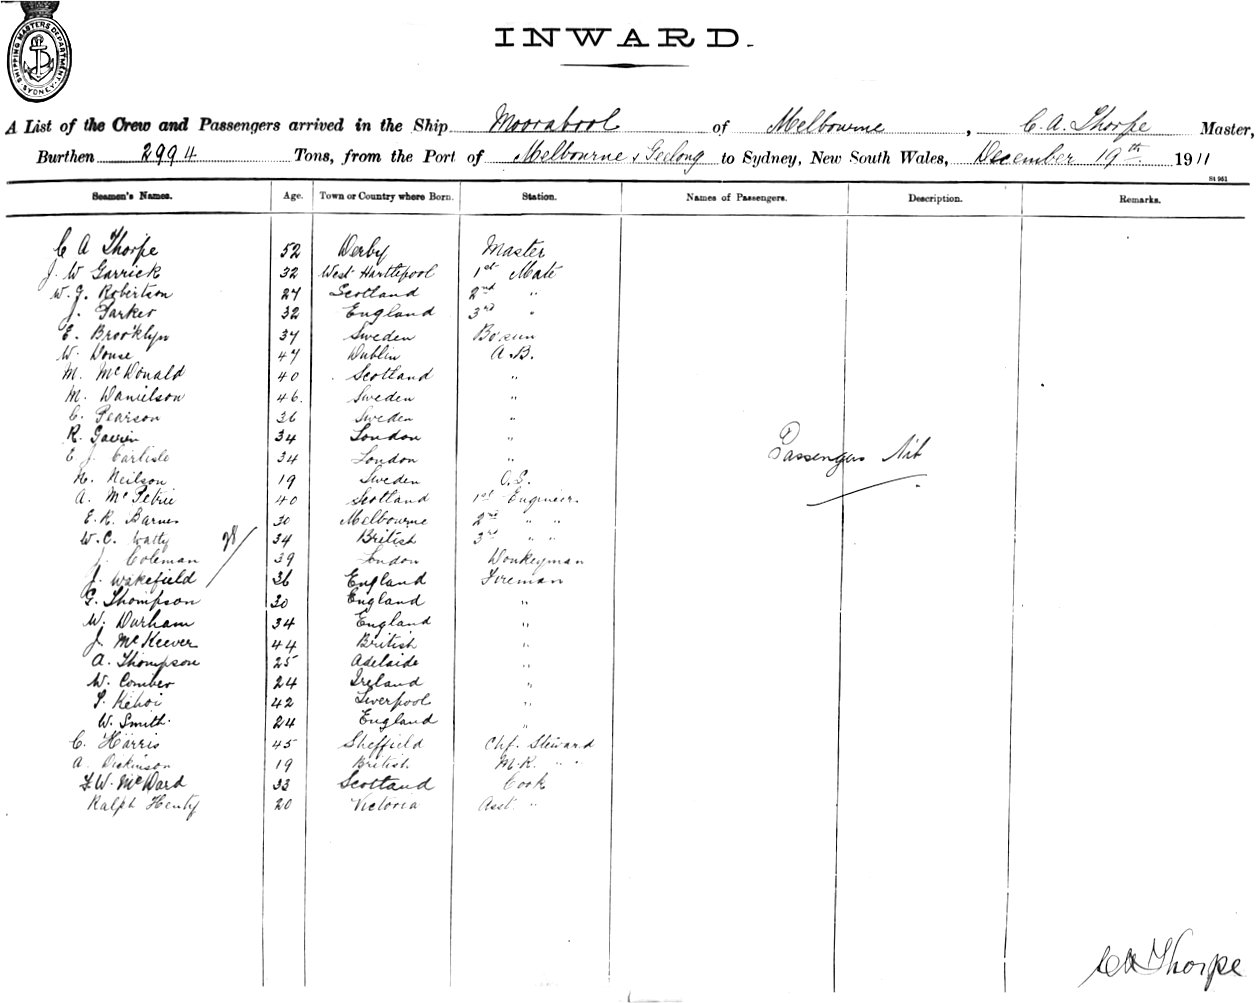 SHIPPING MASTERS DEPARTMENT SYDNEY
INWARD.
A List of the Crew and Passengers arrived in the Ship Moorabool of Melbourne, C. A. Thorpe Master,
Burthen 2994 Tons, from the Port of Melbourne & Geelong to Sydney, New South Wales, December 19th 1911
St 951
Seamen's Names. Age. Town or Country where Born. Station. Names of Passengers. Description. Remarks.
C A Thorpe 52 Derby Master
J. W Garrick 32 West Hartlepool 1st Mate
W. J. Robertson 27 Scotland 2nd "
J. Parker 32 England 3rd "
E. Brooklyn 37 Sweden Bosun
W. 47 Dublin A.B.
M. McDonald 40 Scotland "
M. Danielson 46. Sweden "
C. Pearson 36 Sweden "
R. Gavin 34 London "
E J. Carlisle 34 London "
Passengers Nil
H. Neilson 19 Sweden O.S.
A. McPetrie 40 Scotland 1st Engineer
E. R. Barnes 30 Melbourne 2nd " "
W. C. Watty 34 British 3rd " "
28
J. Coleman 39 London Donkeyman
J. Wakefield 36 England Fireman
G. Thompson 30 England "
W. Durham 34 England "
J. McKeever 44 British "
A. Thompson 25 Adelaide "
W. Comber 24 Ireland "
Kehoi 42 Liverpool "
W. Smith. 24 England "
C. Harris 45 Sheffield Chf. Steward
A. Dickinson 19 British M.R. " "
F. W. McWard 33 Scotland Cook
Ralph Henty 20 Victoria Asst. "
C A Thorpe